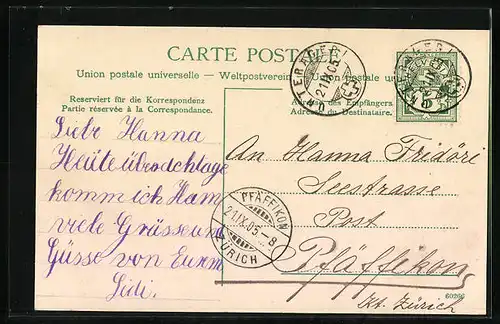 CARTE POSTALE
Union postale universelle — Weltpostverein — Union postale
Reserviert für die Korrespondenz
Partie réservée à la Correspondance.
Adresse des Empfängers
Adresse du Destinataire.
HELVETIA
5
UNTERÄGERI
21.IX.05
Liebe Hanna
Heute
komm ich Ham
viele Grüsse und
Güsse von Eurem
Lidi.
An Hanna Fridöri
Seestrasse
Post
Pfäffikon
Kt. Zürich
PFÄFFIKON
21.IX.05.-8
ZÜRICH
60266